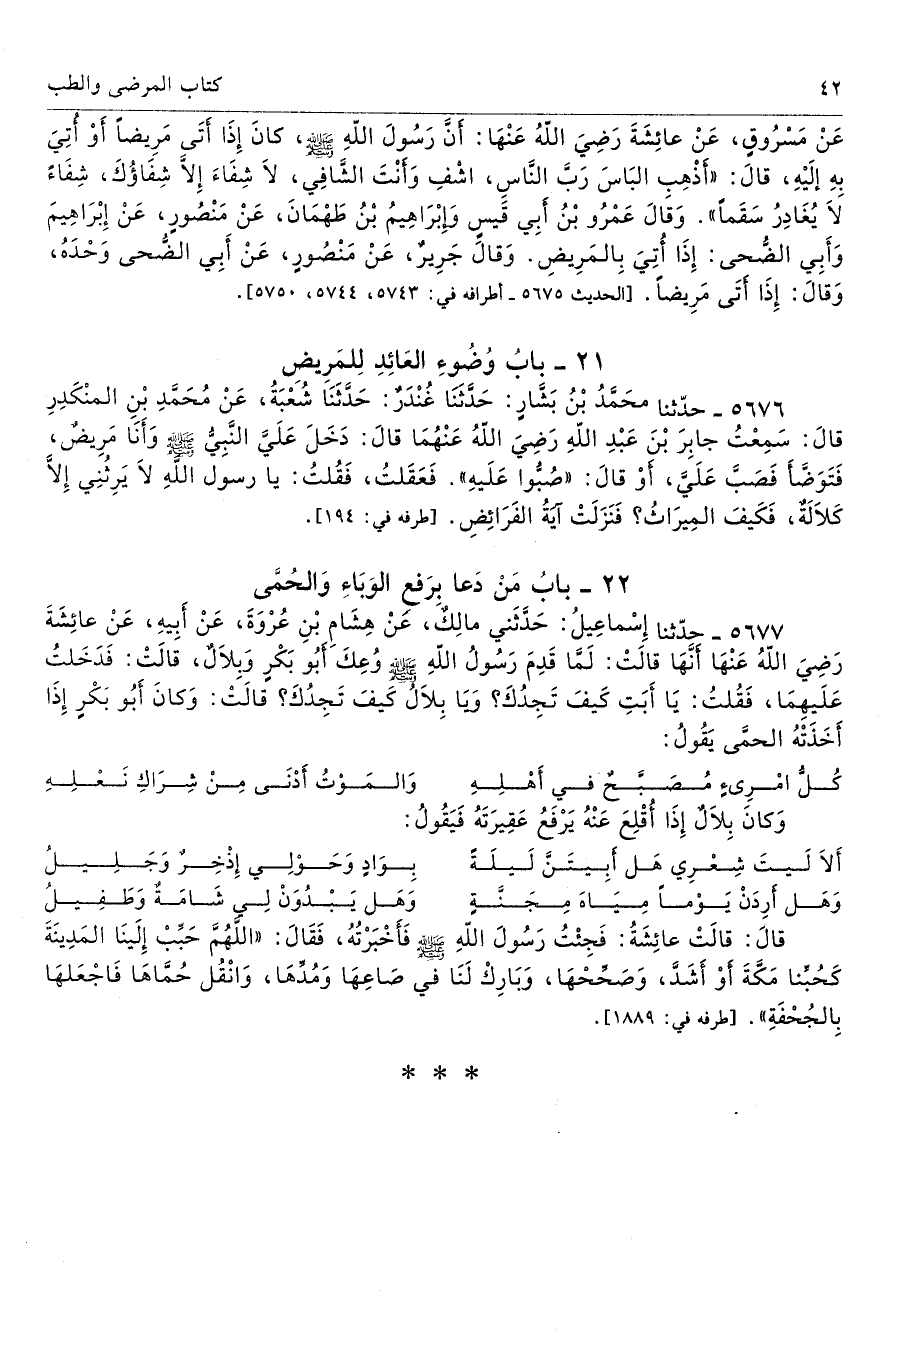 ٤٢ كتاب المرضى والطب
عَنْ مَسْرُوقٍ، عَنْ عائِشَةَ رَضِيَ اللّهُ عَنْهَا: أَنَّ رَسُولَ اللّهِ ﷺ، كانَ إِذَا أَتَى مَرِيضاً أَوْ أُتِيَ
بِهِ إِلَيْهِ، قالَ: «أَذْهِبِ البَاسَ رَبَّ النَّاسِ، اشْفِ وَأَنْتَ الشَّافِي، لاَ شِفَاءَ إِلاَّ شِفَاؤُكَ، شِفَاءً
لاَ يُغَادِرُ سَقَماً». وَقالَ عَمْرُو بْنُ أَبِي قَيْسٍ وَإِبْرَاهِيمُ بْنُ طَهْمَانَ، عَنْ مَنْصُورٍ، عَنْ إِبْرَاهِيمَ
وَأَبِي الضُّحى: إِذَا أُتِيَ بِالمَرِيضِ. وَقالَ جَرِيرٌ، عَنْ مَنْصُورٍ، عَنْ أَبِي الضُّحى وَحْدَهُ،
وَقالَ: إِذَا أَتَى مَرِيضاً. [الحديث ٥٦٧٥ ـ أطرافه في: ٥٧٤٣، ٥٧٤٤، ٥٧٥٠].
٢١ ـ بابُ وُضُوءِ العَائِدِ لِلمَرِيضِ
٥٦٧٦ ـ حدّثنا محَمَّدُ بْنُ بَشَّارٍ: حَدَّثَنَا غُنْدَرٌ: حَدَّثَنَا شُعْبَةُ، عَنْ مُحَمَّدِ بْنِ المنْكَدِرِ
قالَ: سَمِعْتُ جابِرَ بْنَ عَبْدِ اللّهِ رَضِيَ اللّهُ عَنْهُمَا قالَ: دَخَلَ عَلَيَّ النَّبِيُّ ﷺ وَأَنَا مَرِيضٌ،
فَتَوَضَّأَ فَصَبَّ عَلَيَّ، أَوْ قالَ: «صُبُّوا عَلَيهِ». فَعَقَلتُ، فَقُلتُ: يا رسول اللَّهِ لاَ يَرِثُنِي إِلاَّ
كَلاَلَةٌ، فَكَيفَ المِيرَاثُ؟ فَنَزَلَتْ آيَةُ الفَرَائِضِ. [طرفه في: ١٩٤].
٢٢ ـ بابُ مَنْ دَعا بِرَفعِ الوَبَاءِ وَالحُمَّى
٥٦٧٧ ـ حدّثنا إِسْماعِيلُ: حَدَّثَني مالِكٌ، عَنْ هِشَامِ بْنِ عُرْوَةَ، عَنْ أَبِيهِ، عَنْ عائِشَةَ
رَضِيَ اللّهُ عَنْهَا أَنَّهَا قالَتْ: لَمَّا قَدِمَ رَسُولُ اللّهِ ﷺ وُعِكَ أَبُو بَكْرٍ وَبِلاَلٌ، قالَتْ: فَدَخَلتُ
عَلَيهِمَا، فَقُلتُ: يَا أَبَتِ كَيفَ تَجِدُكَ؟ وَيَا بِلاَلُ كَيفَ تَجِدُكَ؟ قالَتْ: وَكانَ أَبُو بَكْرٍ إِذَا
أَخَذَتْهُ الحمَّى يَقُولُ:
كُلُّ امْرِىءٍ مُصَبَّحٌ في أَهْلِهِ وَالمَوْتُ أَدْنَى مِنْ شِرَاكِ نَعْلِهِ
وَكانَ بِلاَلٌ إِذَا أُقْلِعَ عَنْهُ يَرْفَعُ عَقِيرَتَهُ فَيَقُولُ:
أَلاَ لَيتَ شِعْرِي هَل أَبِيتَنَّ لَيلَةً بِوَادٍ وَحَوْلِي إِذْخِرٌ وَجَلِيلُ
وَهَل أَرِدَنْ يَوْماً مِيَاهَ مِجَنَّةٍ وَهَل يَبْدُوَنْ لِي شَامَةٌ وَطَفِيلُ
قالَ: قالَتْ عائِشَةُ: فَجِئْتُ رَسُولَ اللّهِ ﷺ فَأَخْبَرْتُهُ، فَقَالَ: «اللَّهُمَّ حَبِّبْ إِلَينَا المَدِينَةَ
كَحُبِّنا مَكَّةَ أَوْ أَشَدَّ، وَصَحِّحْهَا، وَبَارِكْ لَنَا في صَاعِهَا وَمُدِّهَا، وَانْقُل حُمَّاهَا فَاجْعَلهَا
بِالجُحْفَةِ». [طرفه في: ١٨٨٩].
* * *